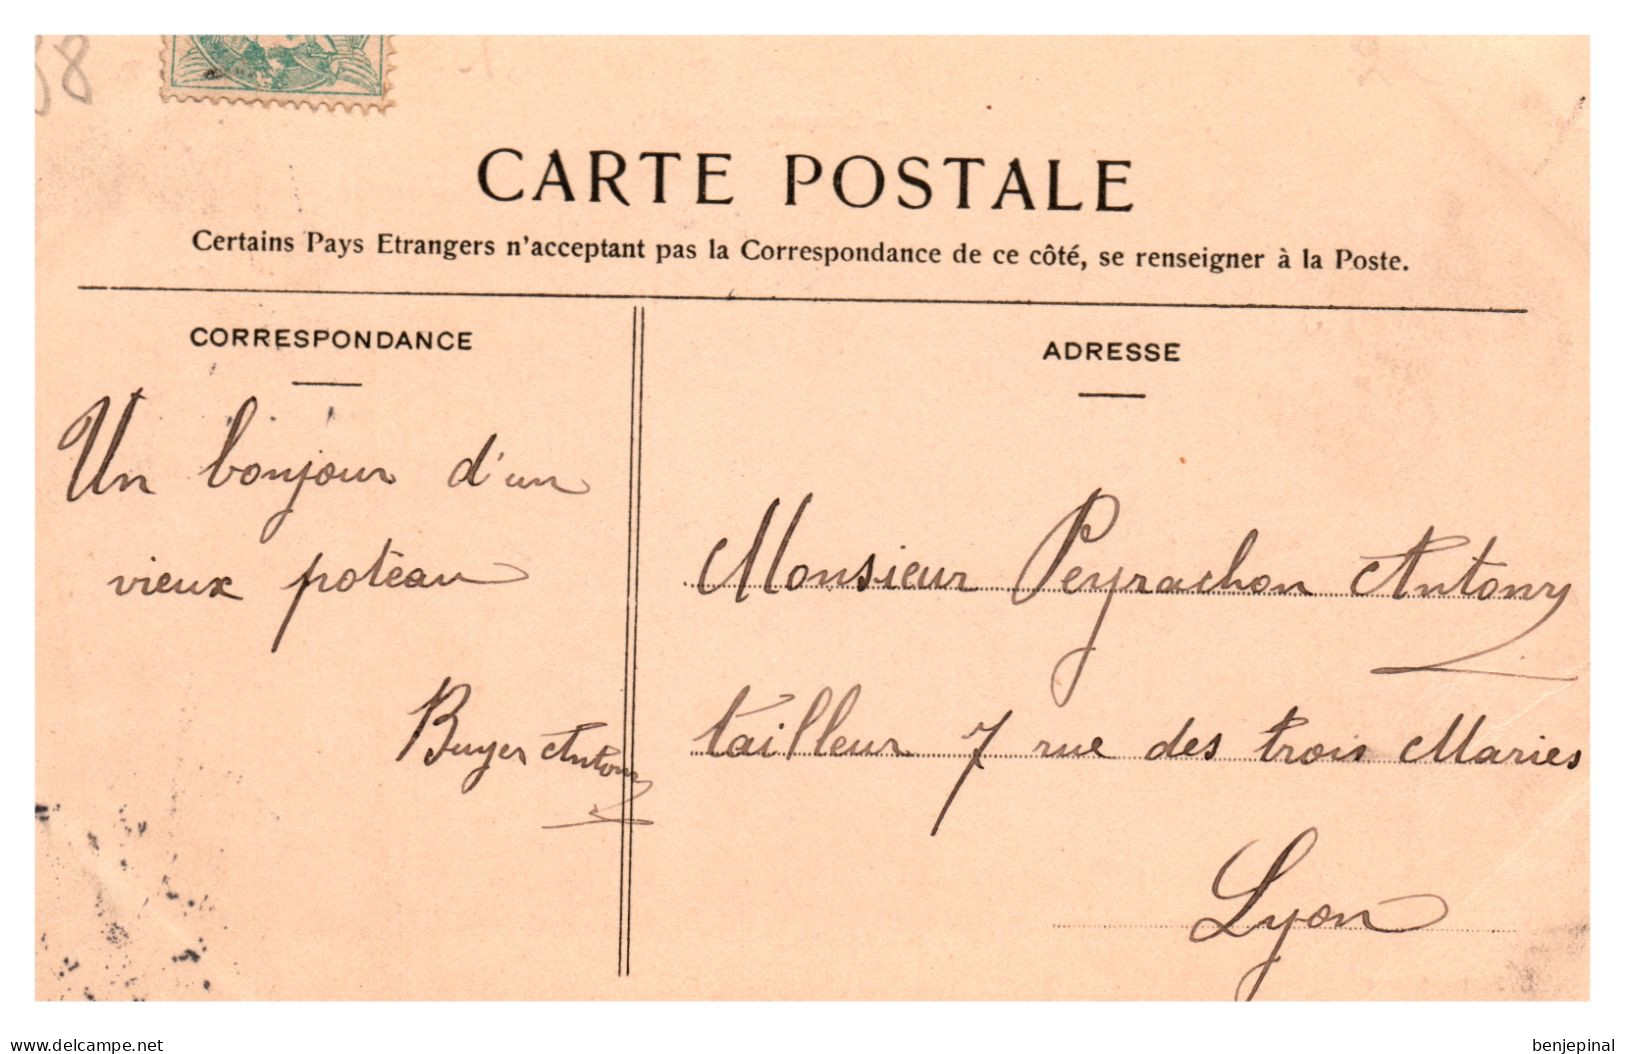 58
CARTE POSTALE
Certains Pays Etrangers n'acceptant pas la Correspondance de ce côté, se renseigner à la Poste.
CORRESPONDANCE
Un bonjour d'un
vieux poteau
Buyer Antony
ADRESSE
Monsieur Peyrachon Antony
tailleur 7 rue des trois Maries
Lyon
www.delcampe.net
benjepinal